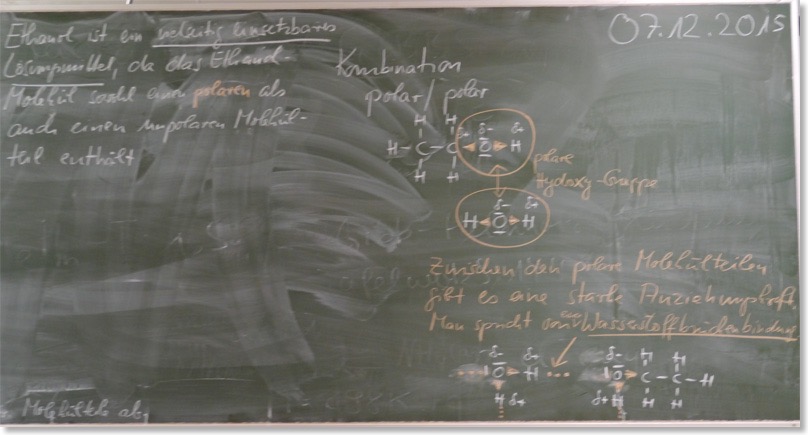 Ethanol ist ein vielseitig einsetzbares
Lösungsmittel, da das Ethanol-
Molekül sowohl einen polaren als
auch einen unpolaren Molekül-
teil enthält
07.12.2015
Kombination
polar/polar
H H
δ- δ- δ+
H-C-C O H
H H
polare
Hydroxy-Gruppe
δ- δ+
H O H
Zwischen den polare Molekülteilen
gibt es eine starke Anziehungskraft.
Man spricht von einer Wasserstoffbrückenbindung
δ- δ+ δ- H H
O H ••• O C-C-H
H δ+ δ+ H H H
Molekülteile ab,